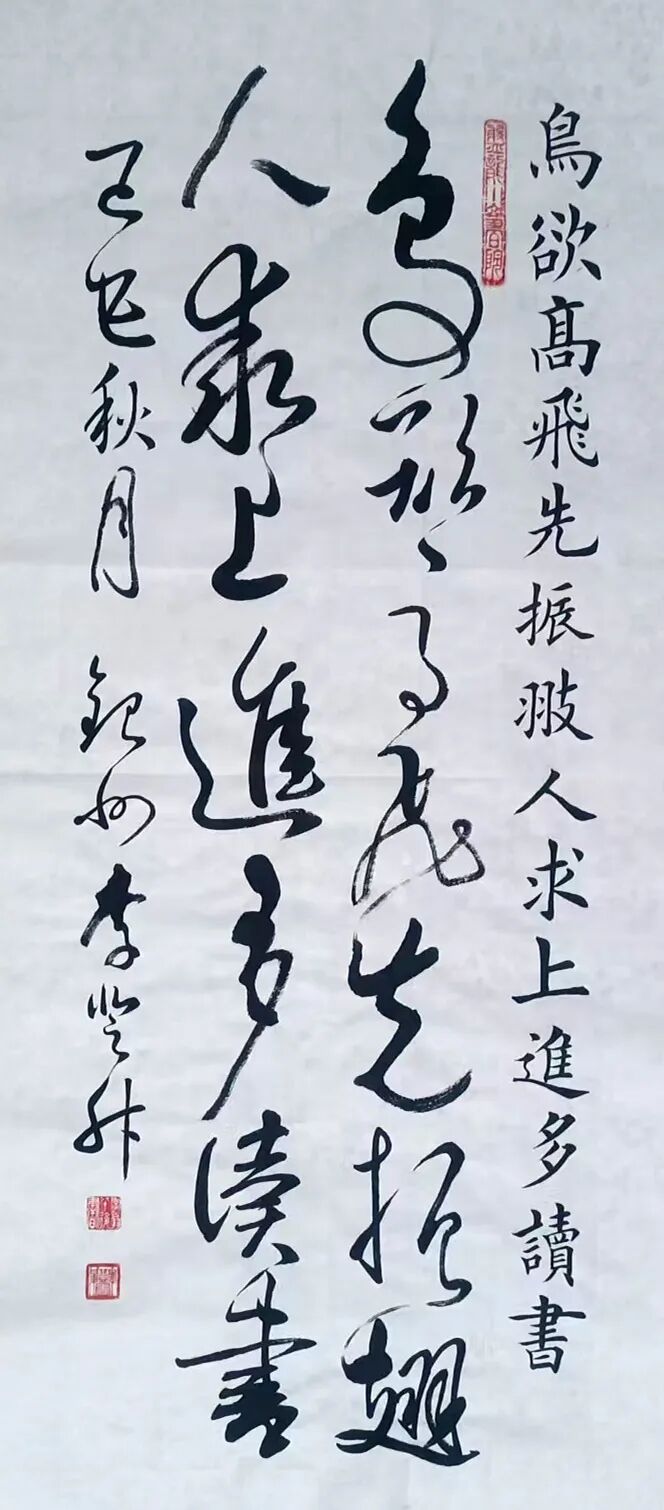 鳥欲髙飛先振翄人求上進多讀書
鳥欲高飛先振翅
人求上進多讀書
乙巳秋月 州李升